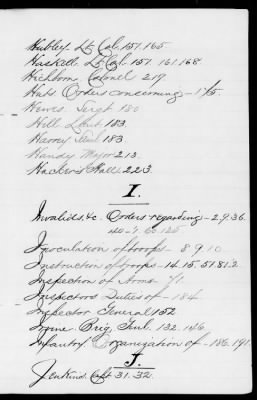 Hubley Lt Col. 157. 165
Haskell. Lt Col. 157. 161. 168
Hichborn Colonel 219.
Hats Orders concerning - 175.
Hewes Sergt 180
Hill Lieut. 183.
Harvey Lieut 183
Handy Major 213.
Hacker's Hall. 223.
I.
Invalids, &c. Orders regarding - 29. 36.
Inoculation of troops - 8. 9. 10
Instruction of troops - 14. 15. 57. 81. 2.
Inspection of Arms 71.
Inspectors Duties of - 184.
Inspector General 152
Irvine Brig. Genl. 132. 146.
Infantry Organization of - 186. 191.
J.
Jenkins. Capt 31. 32.